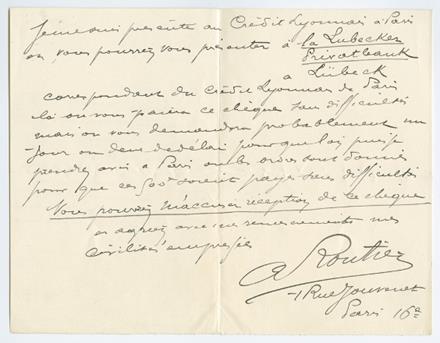 Je me suis présenté au Crédit Lyonnais à Paris
ou vous pourrez vous présenter à la Lubecker
Privatbank
à Lübeck
correspondant du Crédit Lyonnais de Paris
là on vous paiera ce chèque sans difficultés
mais on vous demandera probablement un
jour ou deux de délai pour que l'on puisse
prendre avis à Paris où les ordres sont donnés
pour que ces 600f soient payés sans difficultés
Vous pourrez m'accuser réception de ce chèque
et agréez avec mes remerciements mes
civilités empressées
A Routier
1 Rue Jouvenet
Paris 16e